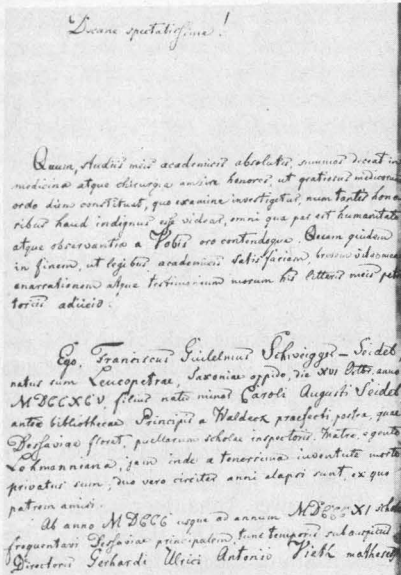 Decane spectatissime!
Quum, studiis meis academicis absolutis, summos deceat in
medicina atque chirurgia ambire honores, ut gratiosus medicorum
ordo diem constituat, quo examine investigetur, num tantis hono
ribus haud indignus esse videar, omni qua par est humanitate
atque observantia a Vobis oro contendoque. Quem quidem
in finem, ut legibus academicis satisfaciam, brevem vitae meae
enarrationem atque testimonium morum his litteris meis peti
toriis adiicio.
Ego, Franciscus Guilelmus Schweigger-Seidel,
natus sum Leucopetrae, Saxoniae oppido, die XVI Octbr. anno
MDCCXCV, filius natu minor Caroli Augusti Seidel
antea bibliothecae Principis a Waldeck praefecti, postea, quae
Dessaviae floret, puellarum scholae inspectoris. Matre, e gente
Lohmanniana, jam inde a tenerrima juventute morte
privatus sum; duo vero circiter anni elapsi sunt, ex quo
patrem amisi.
Ab anno MDCCC usque ad annum MDCCCXI schol
frequentavi Dessaviae principalem, tunc temporis sub auspiciis
Directoris Gerhardi Ulrici Antonii Vieth matheseos